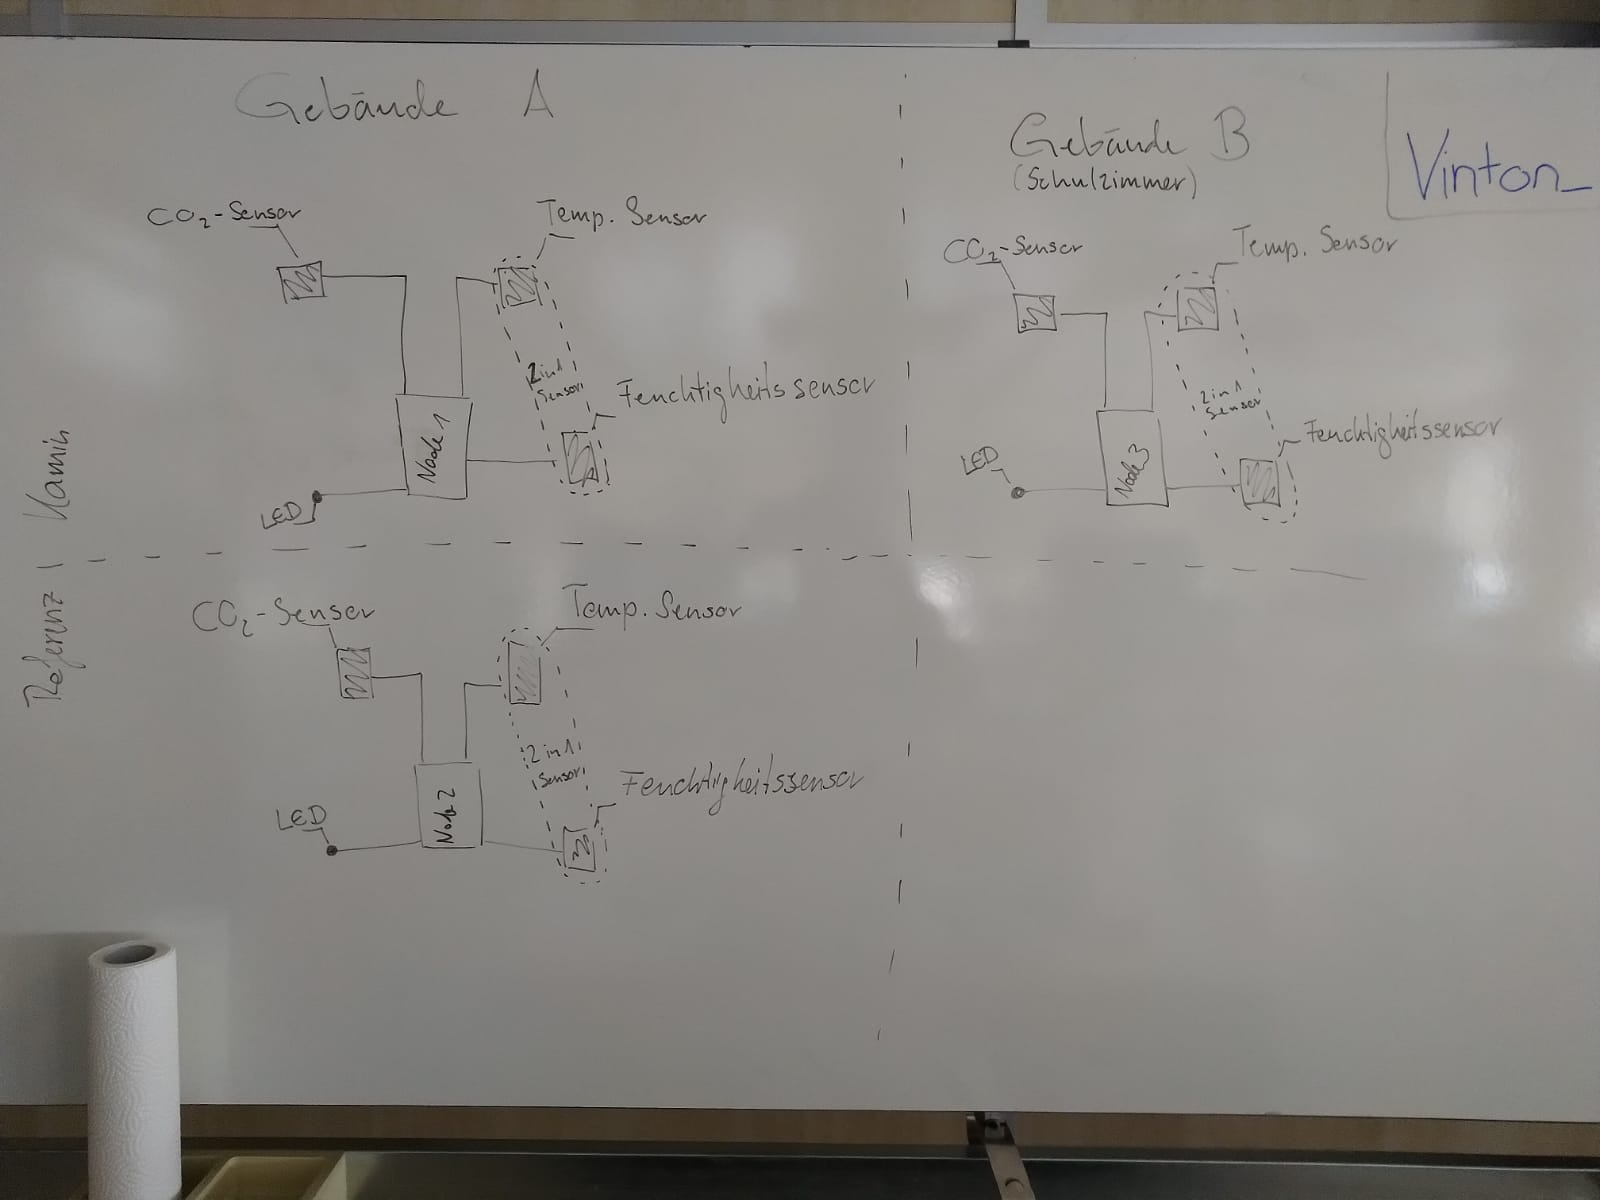 Gebäude A
CO₂-Sensor
Temp. Sensor
2in1
Sensor
Feuchtigkeitssensor
Node 1
LED
Gebäude B
(Schulzimmer)
Vinton_
CO₂-Sensor
Temp. Sensor
2in1
Sensor
Feuchtigkeitssensor
Node 3
LED
Referenz | Kamin
CO₂-Sensor
Temp. Sensor
2in1
Sensor
Feuchtigkeitssensor
Node 2
LED